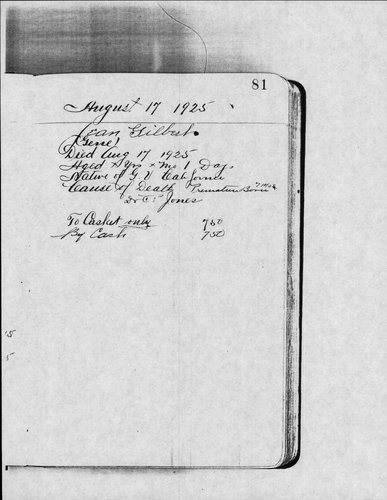 81
August 17 1925
Joan Gilbert
(Gene)
Died Aug 17 1925
Aged x Yrs x Mo 1 Day
Native of G V California
Cause of Death Premature Born 7 Mos
Dr C P Jones
To Casket only 7 50
By Cash 7 50
15
5